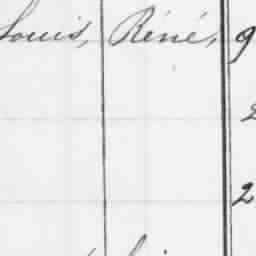 Louis, Réné, 9
2
2